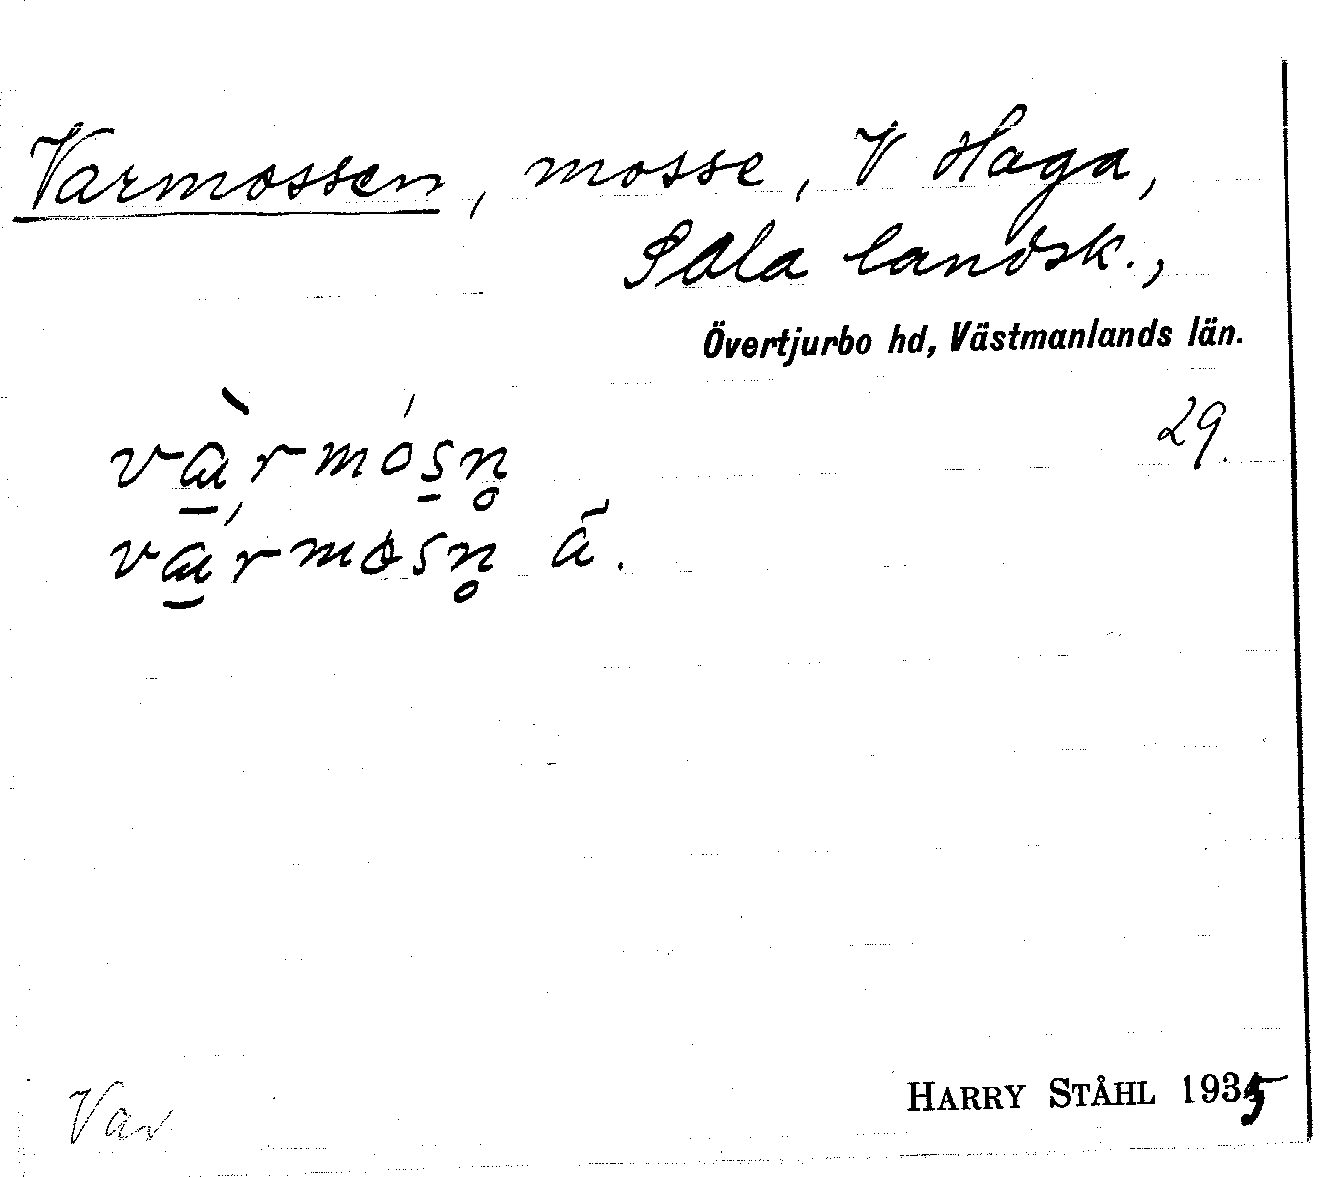 Varmossen, mosse, V Haga,
Sala landsk.,
Övertjurbo hd, Västmanlands län.
29.
và̱rmós̱n̥
vá̱rmosn̥ ā.
Var
HARRY STÅHL 1935